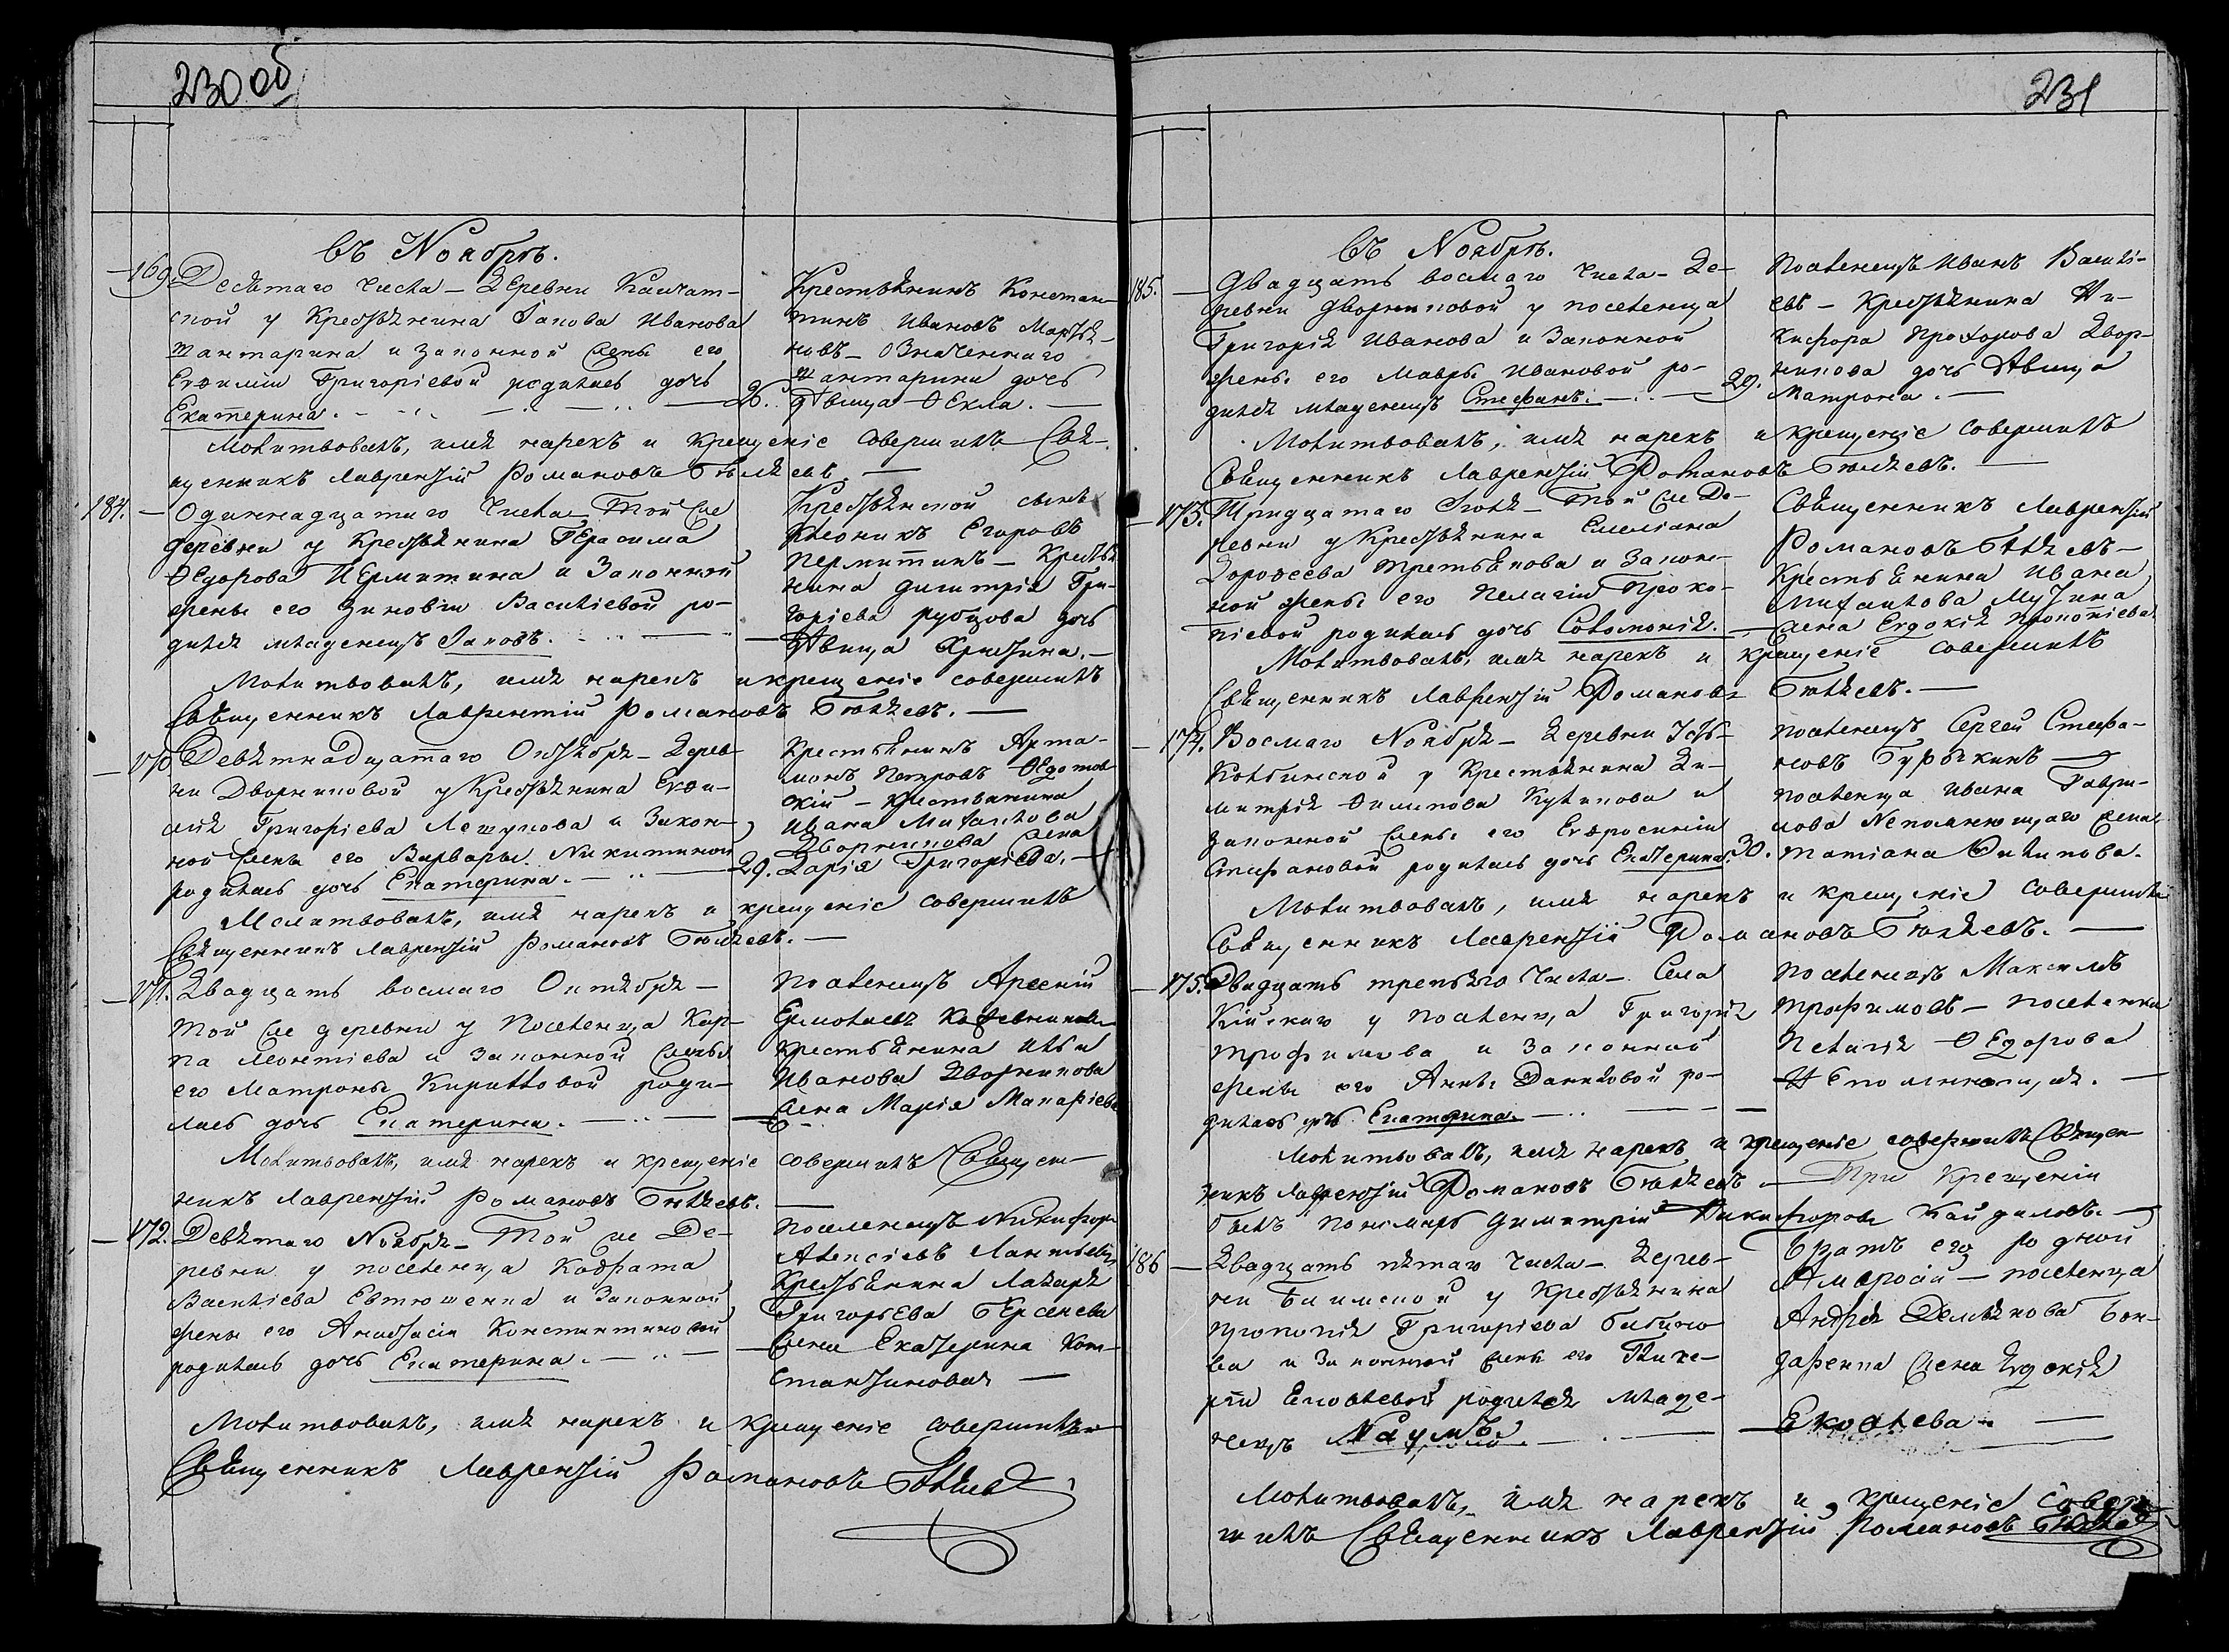 230 об
Въ Ноябрѣ.
169. Десятаго числа – деревни Камчат-
ской у Крестьянина Іакова Иванова
Шантарина и законной жены его
Евѳиміи Григоріевой родилась дочь
Екатерина. 26.
Крестьянинъ Констан-
тинъ Ивановъ
новъ – Означеннаго
Шантарина дочь
дѣвица Ѳекла.
Молитвовалъ, имя нарекъ и крещеніе совершилъ Свя-
щенникъ Лаврентій Романовъ
184. Одиннадцатаго числа – Той же
деревни у Крестьянина Герасима
Ѳедорова Пермитина и законной
жены его Зиновіи Василіевой ро-
дился младенецъ Іаковъ.
Крестьянской сынъ
Егоровъ
Пермитинъ – Кресть
нина Димитрія Гри-
горіева Рубцова дочь
Дѣвица Христина.
Молитвовалъ, имя нарекъ и крещеніе совершилъ
Священникъ Лаврентій Романовъ
170. Девятнадцатаго Октября – Дерев-
ни Дворниковой у Крестьянина Евѳи-
мія Григоріева и закон-
ной жены его Варвары Никитиной
родилась дочь Екатерина. 29.
Крестьянинъ Арта-
монъ Петровъ Ѳедотов
скій – Крестьянина
Ивана Михаилова
Дворникова жена
Дарія Григоріева.
Молитвовалъ, имя нарекъ и крещеніе совершилъ
Священникъ Лаврентій Романовъ
171. Двадцать восьмаго Октября –
Той же деревни у Поселенца Кар-
па Леонтіева и законной жены
его Матроны Кирилловой роди-
лась дочь Екатерина.
Поселенецъ Арсеній
Ермолаевъ Кожевниковъ
Крестьянина Ильи
Иванова Дворникова
жена Марія Макаріева
Молитвовалъ, имя нарекъ и крещеніе совершилъ Священ-
никъ Лаврентій Романовъ
172. Девятаго Ноября – Той же Де-
ревни у поселенца Кодрата
Василіева Евтюшенка и законной
жены его Анастасіи Константиновой
родилась дочь Екатерина.
Поселенецъ Никифоръ
Алексіевъ
Крестьянина Лазаря
Григорьева Берсенева
жена Екатерина Кон-
стантинова
Молитвовалъ, имя нарекъ и крещеніе совершилъ
Священникъ Лаврентій Романовъ
231
Въ Ноябрѣ.
185. Двадцать восьмаго числа – Де-
ревни Дворниковой у поселенца
Григорія Иванова и Законной
жены его Мавры Ивановой ро-
дился младенецъ Стефанъ. 29.
Поселенецъ Иванъ Василі-
евъ – Крестьянина Ни-
кифора Прохорова Двор-
никова дочь дѣвица
Матрона.
Молитвовалъ, имя нарекъ и крещеніе совершилъ
Священникъ Лаврентій Романовъ
173. Тридцатаго – Той же Де-
ревни у Крестьянина Емеліана
Дороѳеева Третьякова и Закон-
ной жены его Пелагіи Проко-
піевой родилась дочь Соломонія.
Священникъ Лаврентій
Романовъ
Крестьянина Ивана
Михаилова
жена Евдокія Прокопіева
Молитвовалъ, имя нарекъ и крещеніе совершилъ
Священникъ Лаврентій Романовъ
174. Восмаго Ноября – Деревни
у Крестьянина Ди-
митрія Филипова Куликова и
законной жены его Евфросиніи
Стефановой родилась дочь Екатерина. 30.
Поселенецъ Сергей Стефа-
новъ
поселенца Ивана Гаври-
лова Непомнющаго жена
Татіана Филипова.
Молитвовалъ, имя нарекъ и крещеніе совершилъ
Священникъ Лаврентій Романовъ
175. Двадцать третьяго числа – Села
Кійскаго у поселенца Григорія
Трофимова и Законной
жены его Анны Даниловой ро-
дилась дчь Екатерина.
Поселенецъ Максимъ
Трофимовъ – поселенка
Пелагія Ѳедорова
Непомннющая.
Молитвовалъ, имя нарекъ и крещеніе совершилъ Священ-
никъ Лаврентій Романовъ – При Крещеніи
былъ пономарь Димитрій Никифоровъ Кайдаловъ.
186 Двадцать пятаго числа – Дерев-
ни у Крестьянина
Прокопія Григоріева
ва и Законной жены его Глике-
ріи родился младе-
нецъ Наумъ.
Братъ его родной
Амвросій – поселенца
Андрея Бон-
даренка жена Евдокія
Молитвовалъ, имя нарекъ и крещеніе совер-
шилъ Священникъ Лаврентій Романовъ